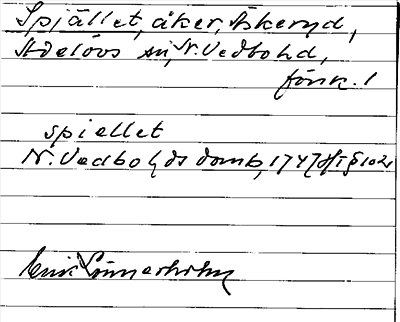 Spjället, åker, Askeryd,
Adelövs sn, N. Vedbo hd,
förk. 1
spiellet
N. Vedbo hds domb, 1747 § 102
Erik Linnerholm